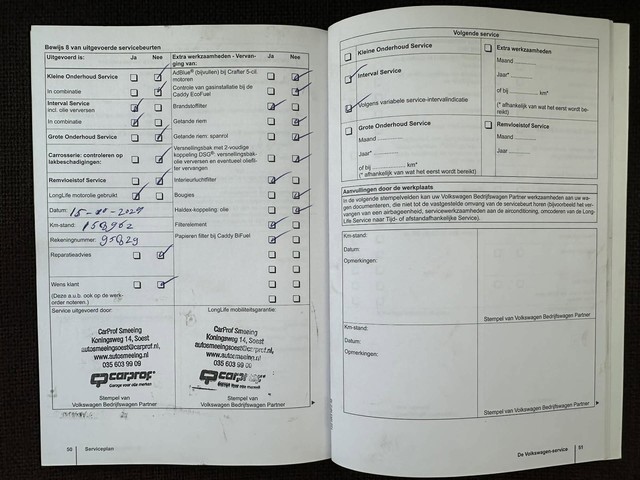 Bewijs 8 van uitgevoerde servicebeurten
Uitgevoerd is: Ja Nee
Kleine Onderhoud Service
In combinatie
Interval Service
incl. olie verversen
In combinatie
Grote Onderhoud Service
Carrosserie: controleren op
lakbeschadigingen:
Remvloeistof Service
LongLife motorolie gebruikt
Datum:
Km-stand: 158962
Rekeningnummer: 95829
Reparatieadvies
Wens klant
(Deze a.u.b. ook op de werk-
order noteren.)
Extra werkzaamheden - Vervan-
ging van: Ja Nee
AdBlue® (bijvullen) bij Crafter 5-cil.
motoren
Controle van gasinstallatie bij de
Caddy EcoFuel
Brandstoffilter
Getande riem
Getande riem: spanrol
Versnellingsbak met 2-voudige
koppeling DSG®: versnellingsbak-
olie verversen en eventueel oliefil-
ter vervangen
Interieurluchtfilter
Bougies
Haldex-koppeling: olie
Filterelement
Papieren filter bij Caddy BiFuel
Service uitgevoerd door:
CarProf Smeeing
Koningsweg 14, Soest
autosmeeingsoest@carprof.nl
www.autosmeeing.nl
035 603 99 09
carprof
Garage voor alle merken
Stempel van
Volkswagen Bedrijfswagen Partner
LongLife mobiliteitsgarantie:
CarProf Smeeing
Koningsweg 14, Soest
autosmeeingsoest@carprof.nl
www.autosmeeing.nl
035 603 99 09
carprof
Garage voor alle merken
Stempel van
Volkswagen Bedrijfswagen Partner
50 Serviceplan
Volgende service
Kleine Onderhoud Service
Interval Service
Volgens variabele service-intervalindicatie
Grote Onderhoud Service
Maand
Jaar*
of bij km*
(* afhankelijk van wat het eerst wordt bereikt)
Extra werkzaamheden
Maand
Jaar*
of bij km*
(* afhankelijk van wat het eerst wordt be-
reikt)
Remvloeistof Service
Maand
Jaar
Aanvullingen door de werkplaats
In de volgende stempelvelden kan uw Volkswagen Bedrijfswagen Partner werkzaamheden aan uw wa-
gen documenteren, die niet tot de vastgestelde omvang van de servicebeurt horen (bijvoorbeeld het ver-
vangen van een airbageenheid, servicewerkzaamheden aan de airconditioning, omcoderen van de Long-
Life Service naar Tijd- of afstandafhankelijke Service).
Km-stand:
Datum:
Opmerkingen:
Stempel van Volkswagen Bedrijfswagen Partner
Km-stand:
Datum:
Opmerkingen:
Stempel van Volkswagen Bedrijfswagen Partner
De Volkswagen-service 51